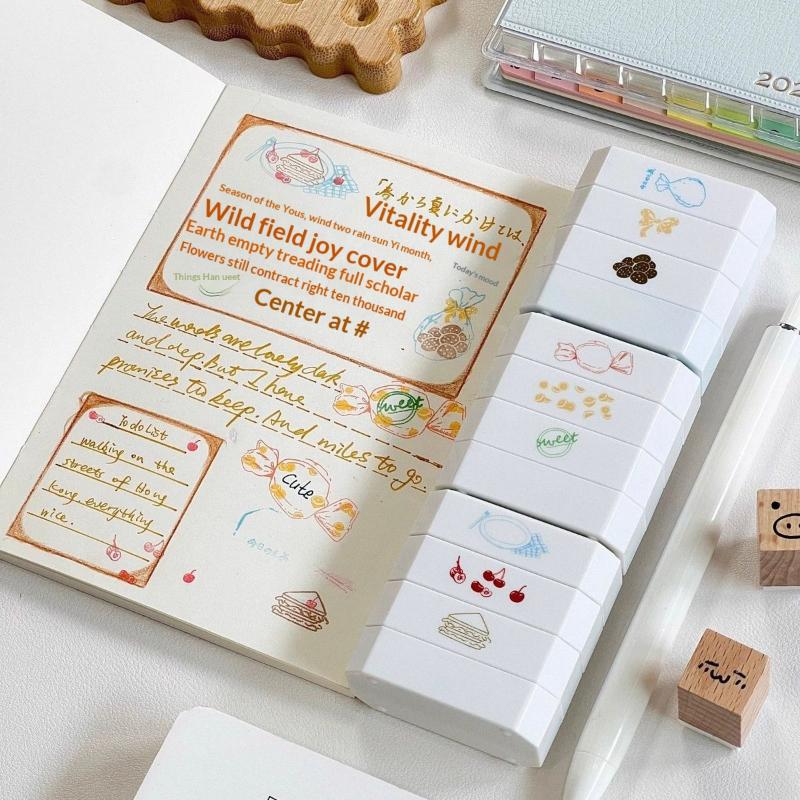 202
「春から夏にかけては、
Vitality wind
Season of the Yous, wind two rain sun Yi month,
Wild field joy cover
Earth empty treading full scholar
Flowers still contract right ten thousand
Center at #
Today's mood
Things Han ueet
The woods are lovely dark
and deep. But I have
promises to keep. And miles to go.
sweet
To do List
walking on the
streets of Hong
Kong everything
nice.
Cute
今日の
sweet